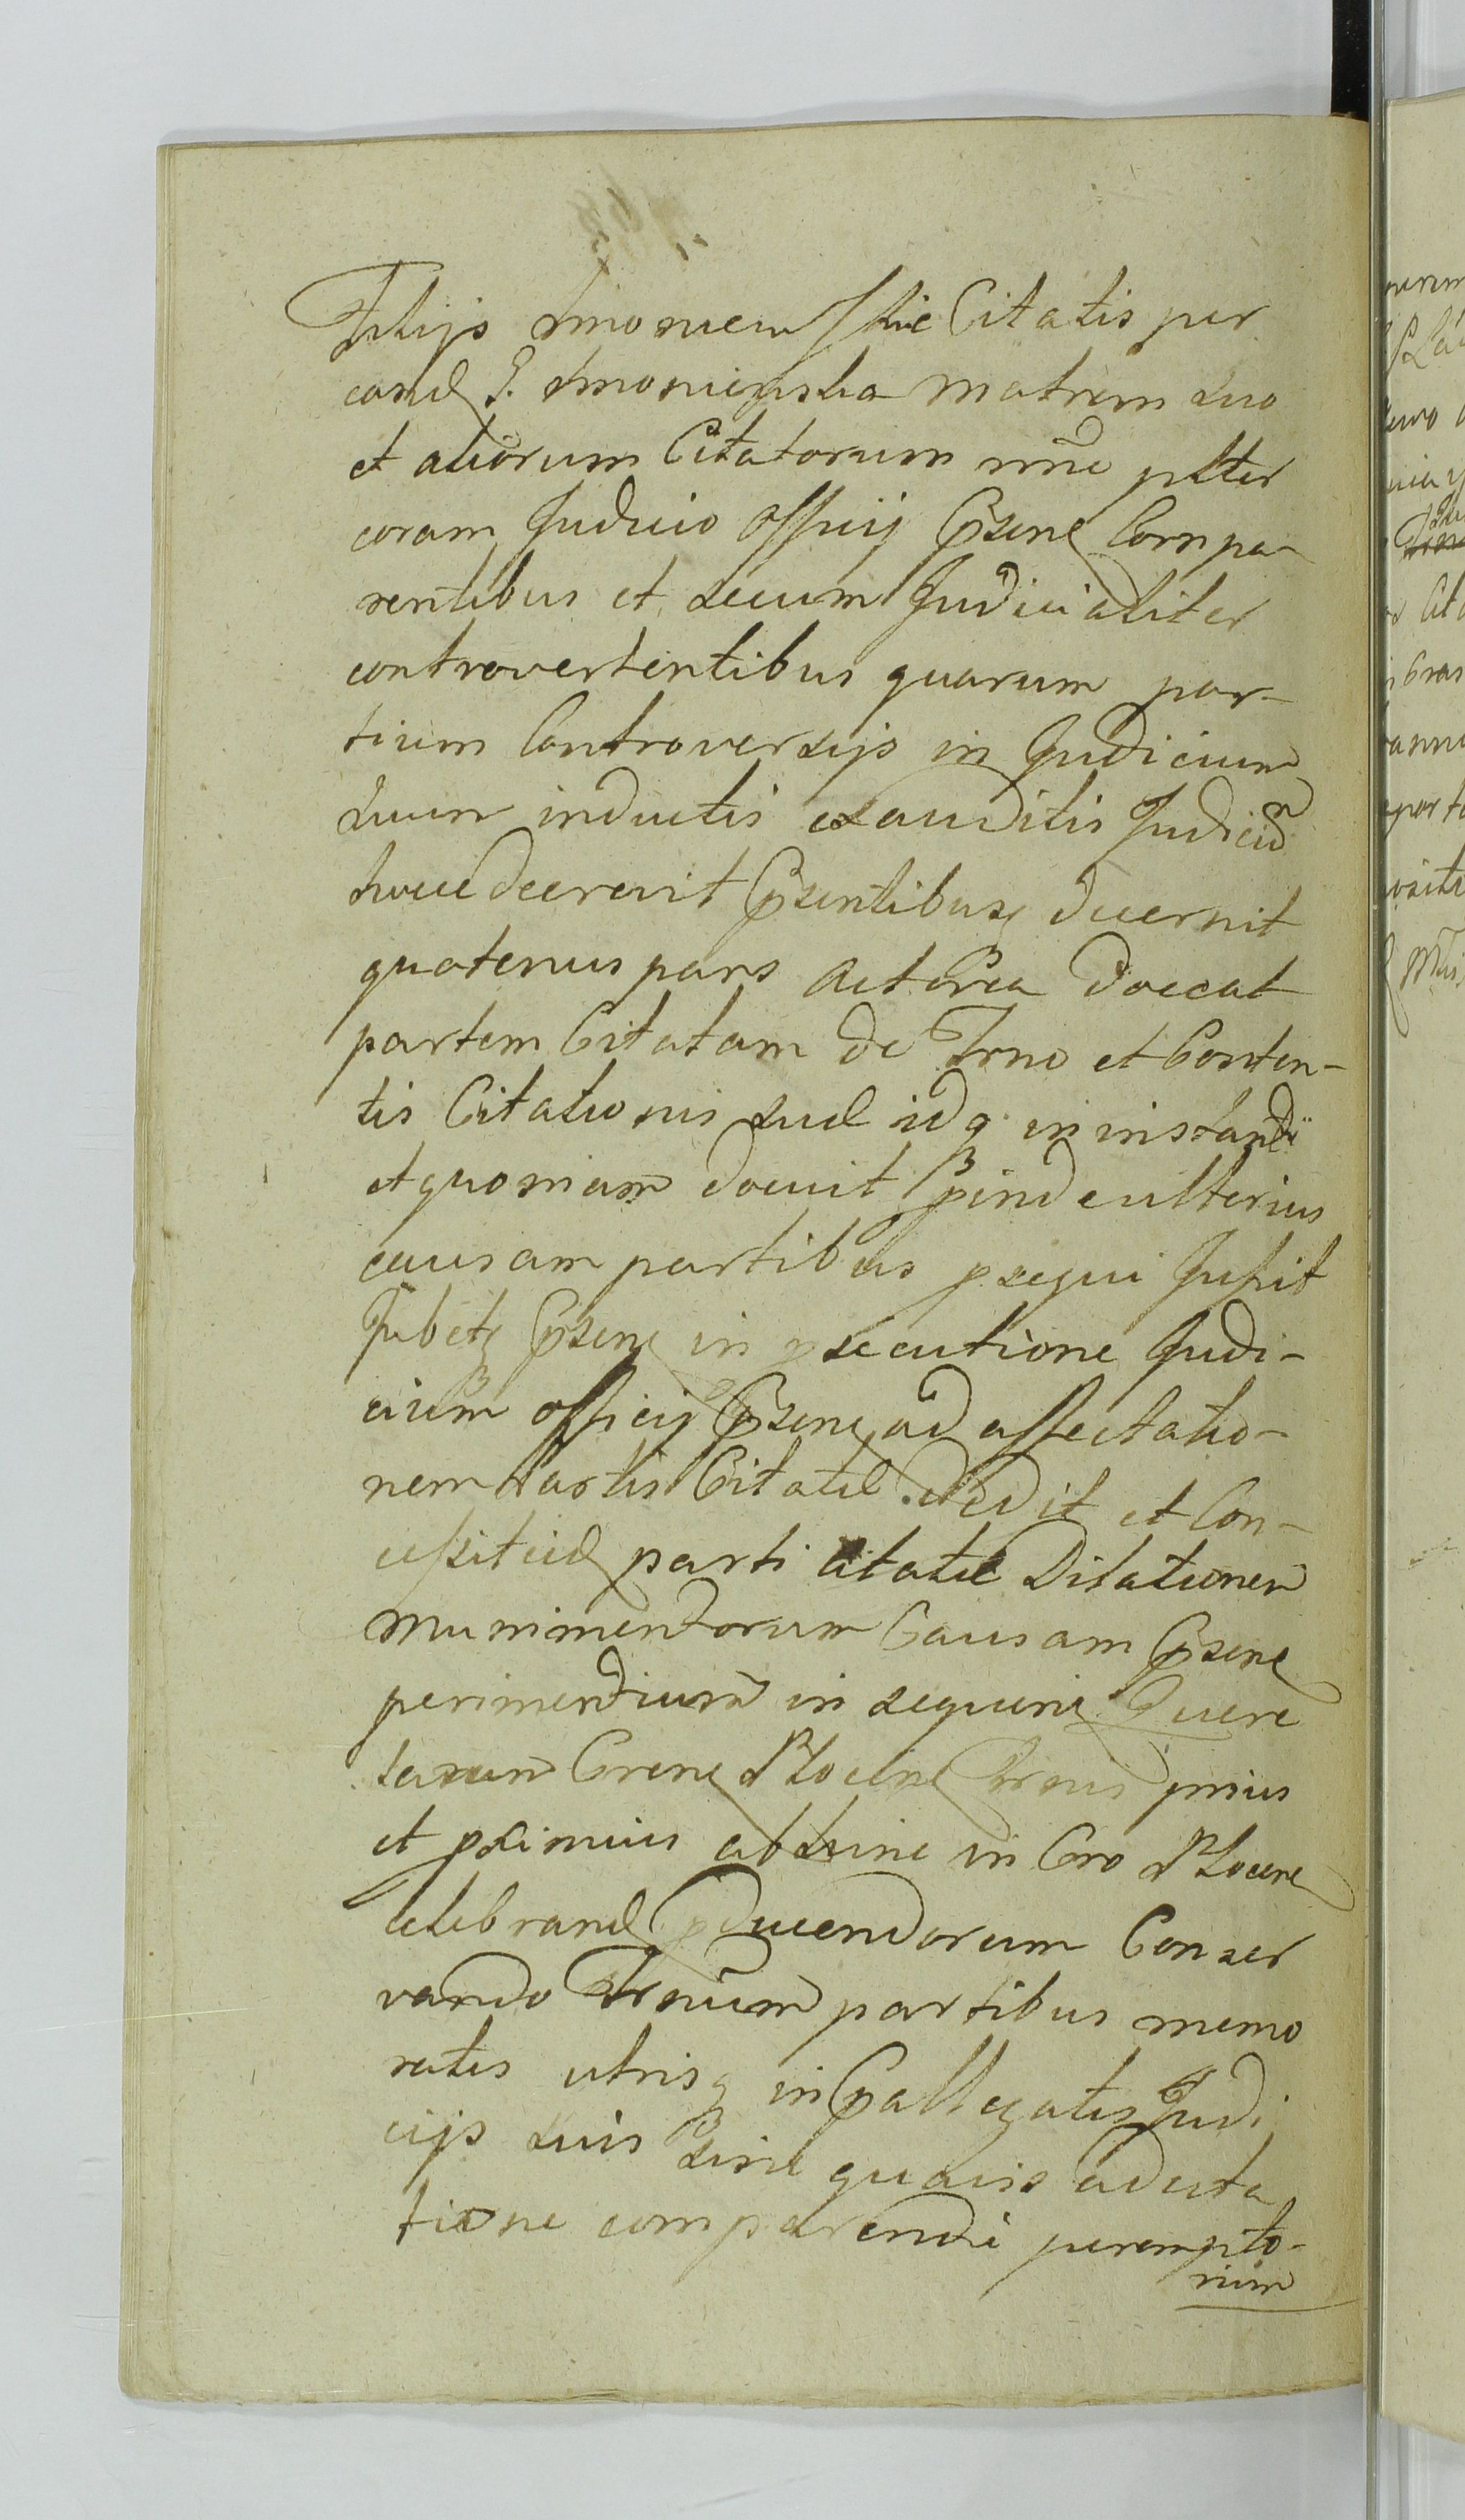 Filijs Citatis per
eand G. matrem suo
et aliorum Citatorum nne plter
coram Judicio Officij Psene Compa-
rentibus et secum Judicialiter
controvertentibus quarum par-
tium Controversijs in Judicium
suum inductis exauditis Judiciu
hocce decrevit Psentibusq decernit
quatenus pars Actorea doceat
partem Citatam de Trno et Conten-
tis Citationis suae idq in instanti
et quoniam docuit pinde ulterius
causam partibus psequi Jussit
Jubetq Psene in psecutione Judi-
cium Officij Psene ad affectatio-
nem Partis Citatae dedit et Con-
cessit eid parti Citatae Dilationem
Munimentorum Causam Psene
perimentium in sequene Quere
larum Crene Plocene Trnis prius
et pximius abhinc in Cro Plocene
celebrand pducendorum Conser
vando Trnum partibus memo
ratis utrisq in Pallegatis Judi
cijs suis sine quavis adcita
tione comparendi perempto-
rium